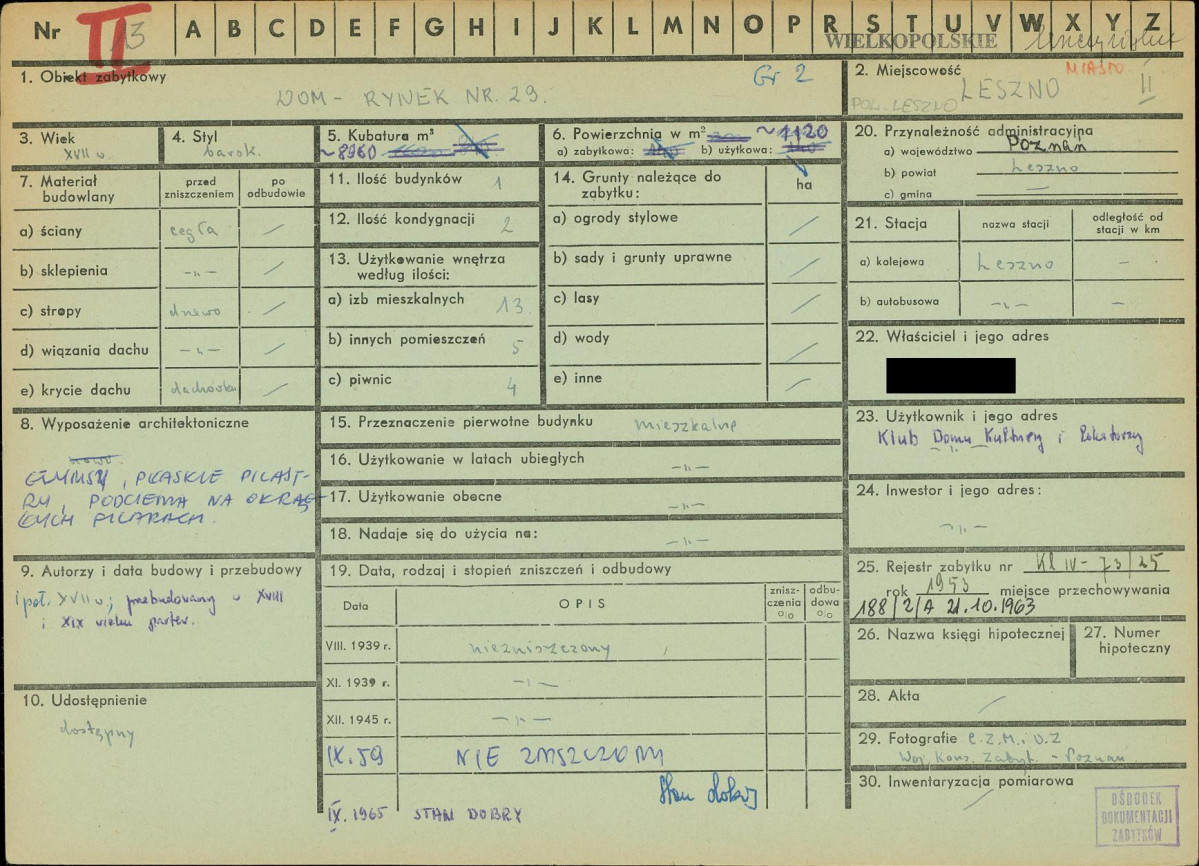 Nr II 13 A B C D E F G H I J K L M N O P R S T U V W X Y Z
WIELKOPOLSKIE
1. Obiekt zabytkowy Gr 2
DOM - RYNEK NR. 29.
2. Miejscowość MIASTO
POW. LESZNO LESZNO II
3. Wiek
XVII w.
4. Styl
barok.
5. Kubatura m³
~8960
6. Powierzchnia w m² ~1120
a) zabytkowa: b) użytkowa:
7. Materiał budowlany
przed zniszczeniem
po odbudowie
a) ściany cegła /
b) sklepienia -„- /
c) stropy drewo /
d) wiązania dachu -„- /
e) krycie dachu dachówka /
8. Wyposażenie architektoniczne
GZYMSY, PŁASKIE PILAST-
RY, PODCIENIA NA OKRĄG-
ŁYCH FILARACH.
9. Autorzy i data budowy i przebudowy
I poł. XVII w; przebudowany w XVIII
i XIX wieku parter.
10. Udostępnienie
dostępny
11. Ilość budynków 1
12. Ilość kondygnacji 2
13. Użytkowanie wnętrza
według ilości:
a) izb mieszkalnych 13
b) innych pomieszczeń 5
c) piwnic 4
14. Grunty należące do
zabytku: ha
a) ogrody stylowe /
b) sady i grunty uprawne /
c) lasy /
d) wody /
e) inne /
15. Przeznaczenie pierwotne budynku mieszkalne
16. Użytkowanie w latach ubiegłych -„-
17. Użytkowanie obecne -„-
18. Nadaje się do użycia na: -„-
19. Data, rodzaj i stopień zniszczeń i odbudowy
Data OPIS znisz-czenia o/o odbu-dowa o/o
VIII. 1939 r. niezniszczony
XI. 1939 r. -„-
XII. 1945 r. -„-
IX. 59 NIE ZNISZCZONY
Stan dobry
IX. 1965 STAN DOBRY
20. Przynależność administracyjna
a) województwo Poznań
b) powiat Leszno
c) gmina —
21. Stacja
nazwa stacji
odległość od
stacji w km
a) kolejowa Leszno -
b) autobusowa -„- -
22. Właściciel i jego adres
23. Użytkownik i jego adres
Klub Domu Kultury i Lokatorzy
-„-
24. Inwestor i jego adres:
-„-
25. Rejestr zabytku nr Kl IV - 73/25
rok 1953 miejsce przechowywania
188/2/A 21.10.1963
26. Nazwa księgi hipotecznej
27. Numer
hipoteczny
28. Akta /
29. Fotografie C.Z.M. i O.Z
Woj. Kons. Zabyt. - Poznań
30. Inwentaryzacja pomiarowa
/
OŚRODEK
DOKUMENTACJI
ZABYTKÓW